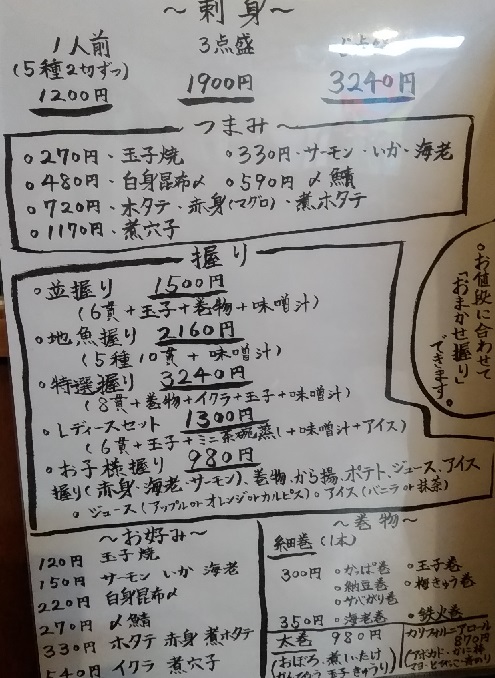 〜刺身〜
1人前
(5種2切ずつ)
1200円
3点盛
1900円
3240円
つまみ
○270円・玉子焼
○330円・サーモン・いか・海老
○480円・白身昆布〆
○590円 〆鯖
○720円・ホタテ・赤身(マグロ)・煮ホタテ
○1170円・煮穴子
握り
○並握り 1500円
(6貫+玉子+巻物+味噌汁)
○地魚握り 2160円
(5種10貫+味噌汁)
○特選握り 3240円
(8貫+巻物+イクラ+玉子+味噌汁)
○レディースセット 1300円
(6貫+玉子+ミニ茶碗蒸し+味噌汁+アイス)
○お子様握り 980円
握り(赤身・海老・サーモン)、巻物、から揚、ポテト、ジュース、アイス
○ジュース(アップルorオレンジorカルピス)○アイス(バニラor抹茶)
○お値段に合わせて
「おまかせ握り」
できます。
〜お好み〜
120円 玉子焼
150円 サーモン いか 海老
220円 白身昆布〆
270円 〆鯖
330円 ホタテ 赤身 煮ホタテ
540円 イクラ 煮穴子
〜巻物〜
細巻(1本)
300円 ○かっぱ巻 ○玉子巻
○納豆巻 ○梅きゅう巻
○サバがり巻
350円 ○海老巻 ○鉄火巻
太巻 980円
(おぼろ、煮しいたけ
かんぴょう 玉子 きゅうり)
カリフォルニアロール
870円
(アボカド・かに棒